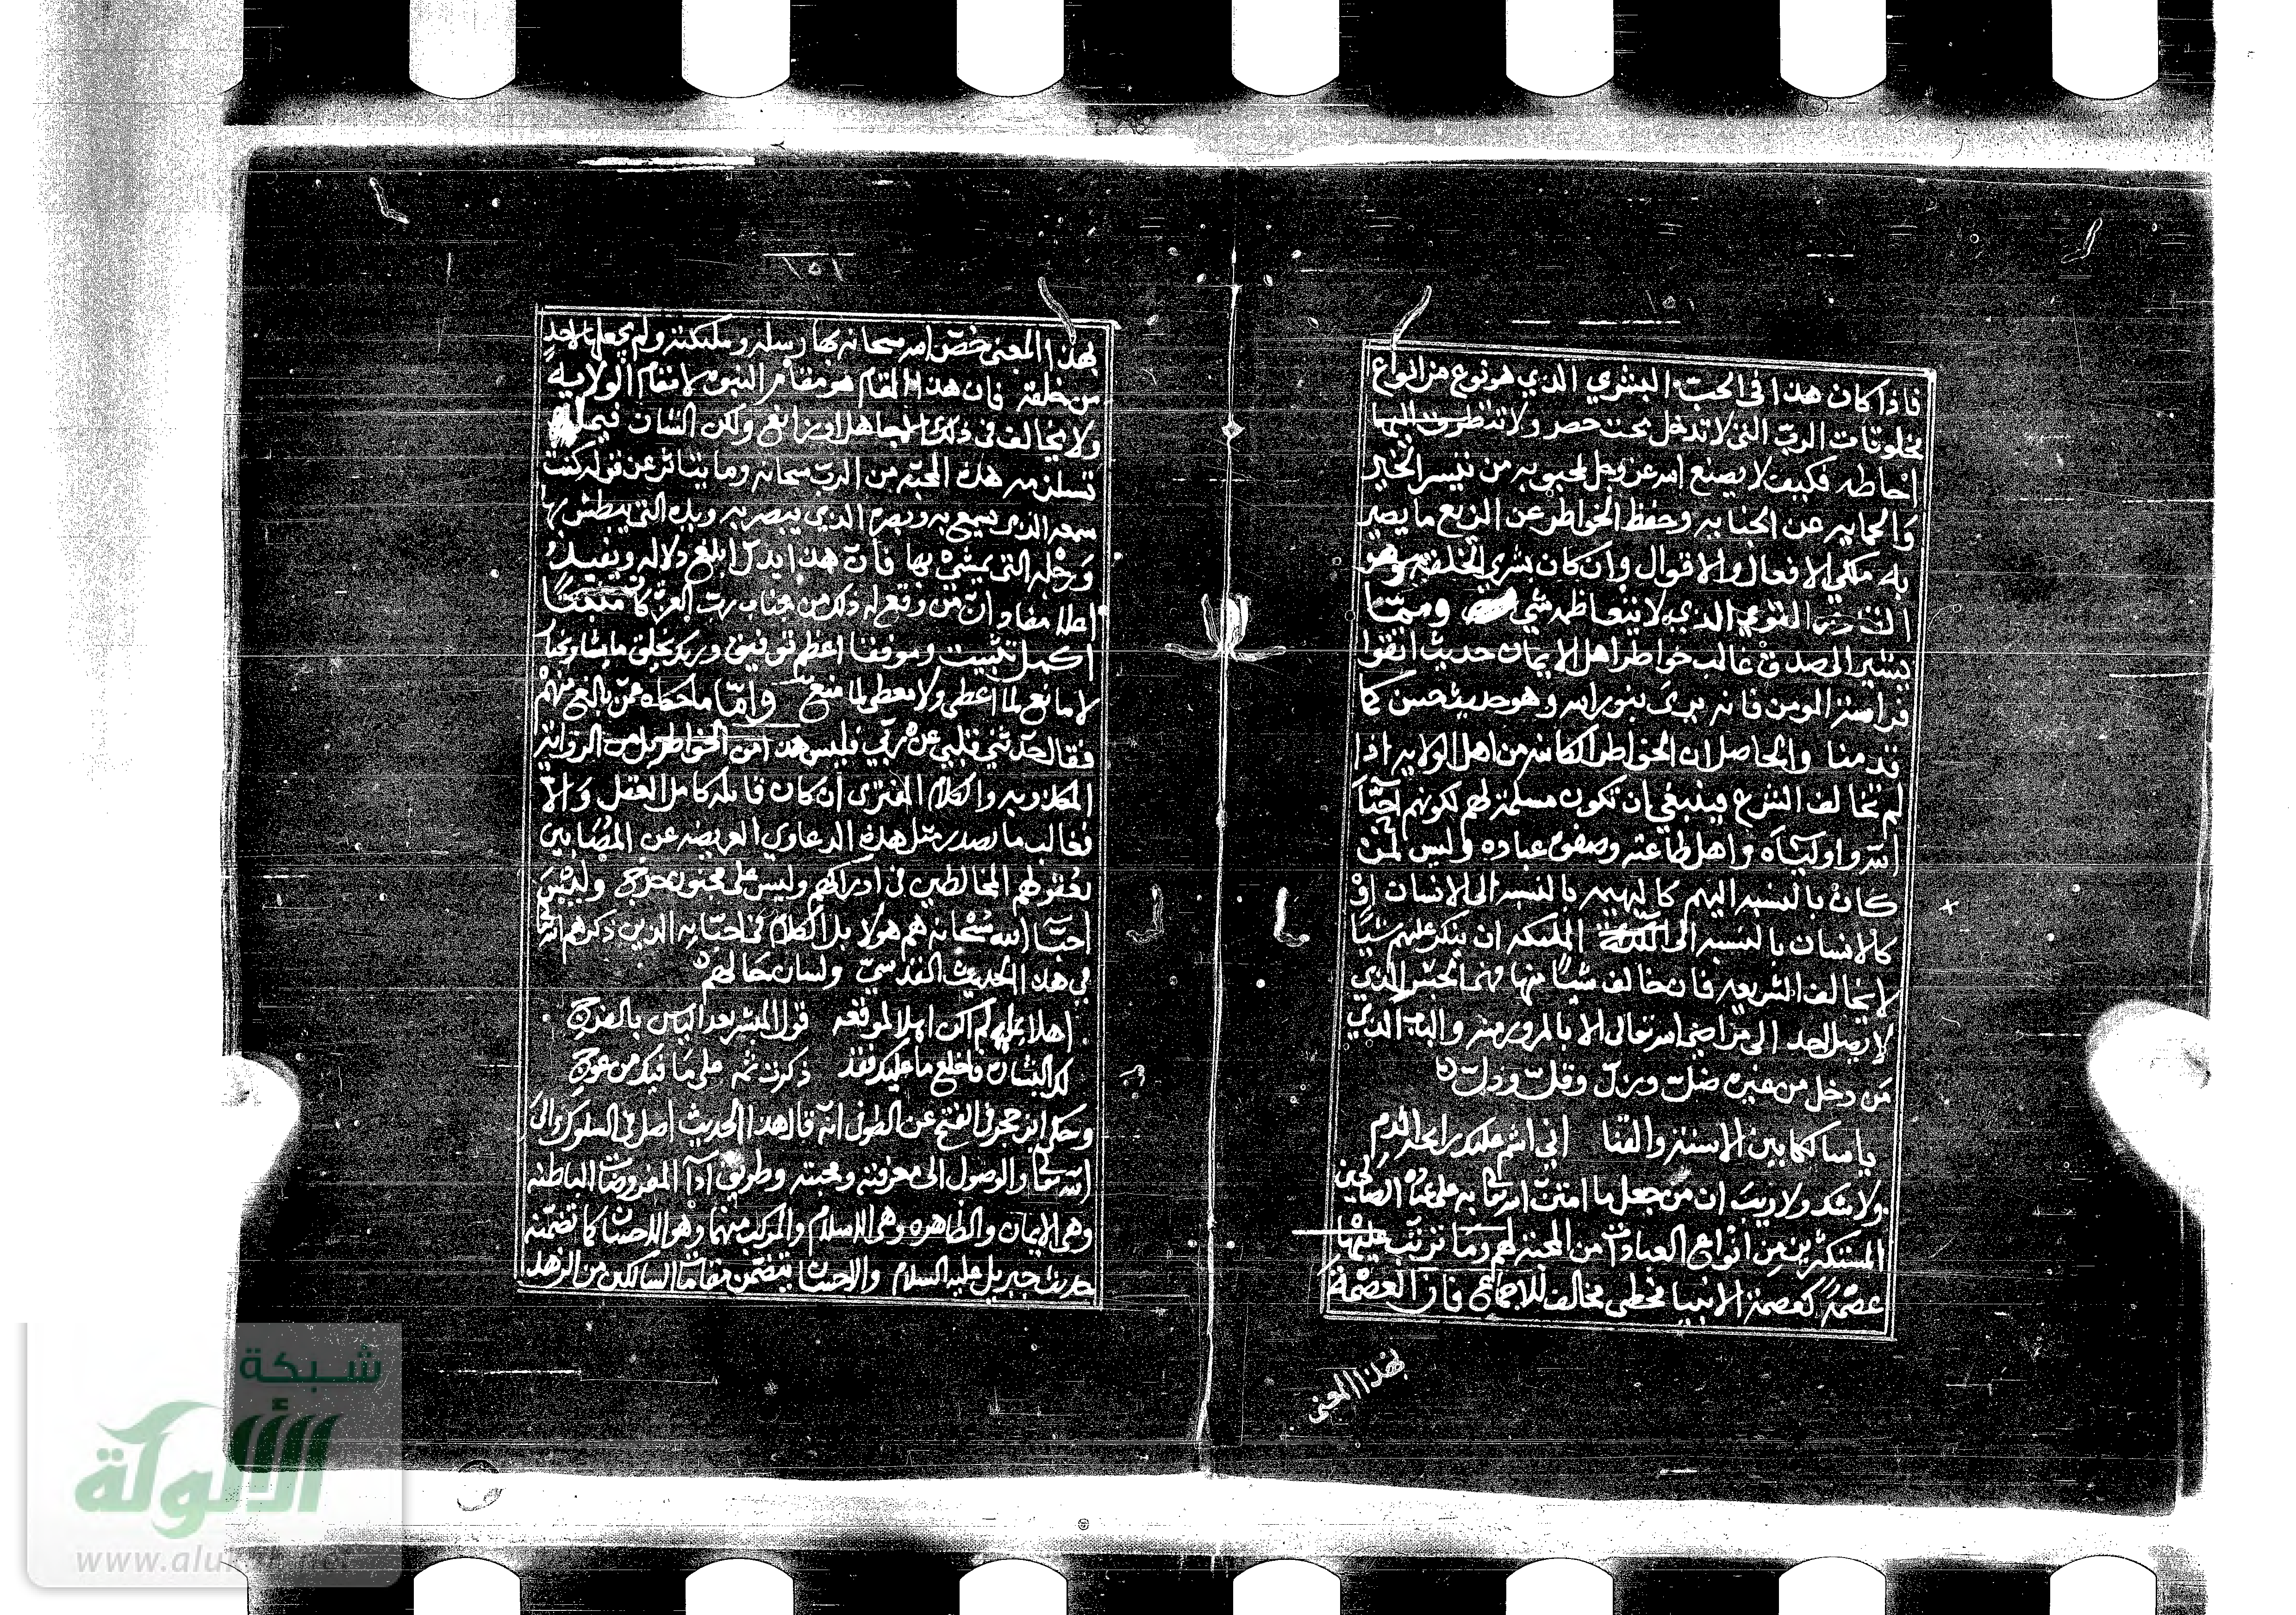 ١٥١
فاذا كان هذا فى الحبّ البشري الذي هو نوع من انواع
مخلوقات الربّ التى لا تدخل تحت حصر ولا تتطرق اليها
احاطه فكيف لا يصنع الله عز وجل لمحبوبه من تيسر الخير
والحمايه عن الجنايه وحفظ الخواطر عن الزيغ ما يصير
به ملكي الافعال والاقوال وان كان بشري الخلقه وهو
القادر القوي الذي لا يتعاظمه شي ومما
يشير الى صدق غالب خواطر اهل الايمان حديث اتقوا
فراسة المومن فانه يرى بنور الله وهو حديث حسن كما
قدمنا والحاصل ان الخواطر الكاينه من اهل الولايه اذا
لم تخالف الشرع فينبغي ان تكون مسلمة لهم لكونهم احبّا
الله واولياه واهل طاعته وصفوة عباده وليس لمن
كان بالنسبه اليهم كالبهيمه بالنسبه الى الانسان او
كالانسان بالنسبه الى الملىكه ان ينكر عليهم شيا
لا يخالف الشريعه فان خالف شيا منها فهى الجسر الذي
لا يصل احد الى مراضى الله تعالى الا بالمرور منه والباب الذي
من دخل من غيره ضلّ وزلّ وقلّ وذلّ
يا سالكا بين الاسنة والقنا اني اشم عليك رايحة الدم
ولا شك ولا ريب ان من جعل ما امتنّ الله تعالى به على عباده الصالحين
المستكثرين من انواع العبادات من المحبة لهم وما ترتب عليها
عصمة كعصمة الانبيا مخطى مخالف للاجماع فان العصمة
بهذا المعنى
١٥١
بهذا المعنى خصّ الله سبحانه بها رسله وملىكته ولم يجعلها لاحد
من خلقه فان هذا المقام هو مقام النبوه لا مقام الولايه
ولا يخالف فى ذلك الا جاهل او زايغ ولكن الشان فيما
تستلزمه هذه المحبّه من الربّ سبحانه وما يتاثر عن قوله كنت
سمعه الذى يسمع به وبصره الذي يبصر به ويده التى يبطش بها
ورجله التى يمشي بها فانّ هذا يدلّ ابلغ دلاله ويفيد
اعلا مفاد انّ من وقع له ذلك من جناب ربّ العزّه كان مثبّتا
اكمل تثبيت وموفقا اعظم توفيق وربك يخلق ما يشا ويختار
لا مانع لما اعطى ولا معطى لما منع وامّا ما حكاه عمّن بالغ منهم
فقال حدّثنى قلبي عن ربّي فليس هذا من الخواطر بل من الروايه
المكذوبه والكلام المفترى ان كان قايله كامل العقل والّا
فغالب ما تصدر مثل هذه الدعاوى العريضه عن المصابين
بعقولهم المخالطين فى ادراكهم وليس على مجنون حرج وليس
احبّا الله سبحانه هم هولا بل الكلام فى احبّايه الذين ذكرهم الله
في هذا الحديث القدسيّ ولسان حالهم
اهلا بما لم اكن اهلا لموقعه قول المبشر بعد الياس بالفرج
لك البشارة فاخلع ما عليك فقد ذكرت ثم على ما فيك من عوج
وحكى ابن حجر فى الفتح عن الطوفى انه قال هذا الحديث اصل فى السلوك الى
الله تعالى والوصول الى معرفته ومحبته وطريق ادآ المفروضات الباطنه
وهى الايمان والظاهره وهى الاسلام والمركب منهما وهو الاحسان كما تضمّنه
حديث جبريل عليه السلام والاحسان يتضمّن مقامات السالكين من الزهد
شبكة
الألوكة